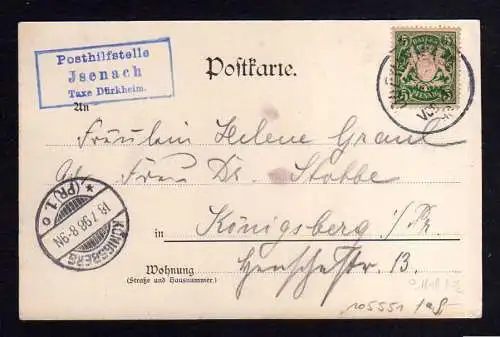 Posthilfstelle
Jsenach
Taxe Dürkheim.
Postkarte.
BAYERN
5 5
PFENNIG
An
Fräulein Helene Graul
Frau Dr. Stobbe
Königsberg i/Pr.
in
13.
Wohnung
(Straße und Hausnummer.)
KÖNIGSBERG
13.7.98.8-9N
* (PR) 1. o
105551